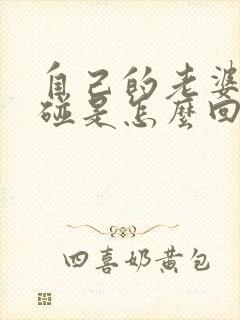 自己的老婆
碰是怎麼回
四喜奶黄包